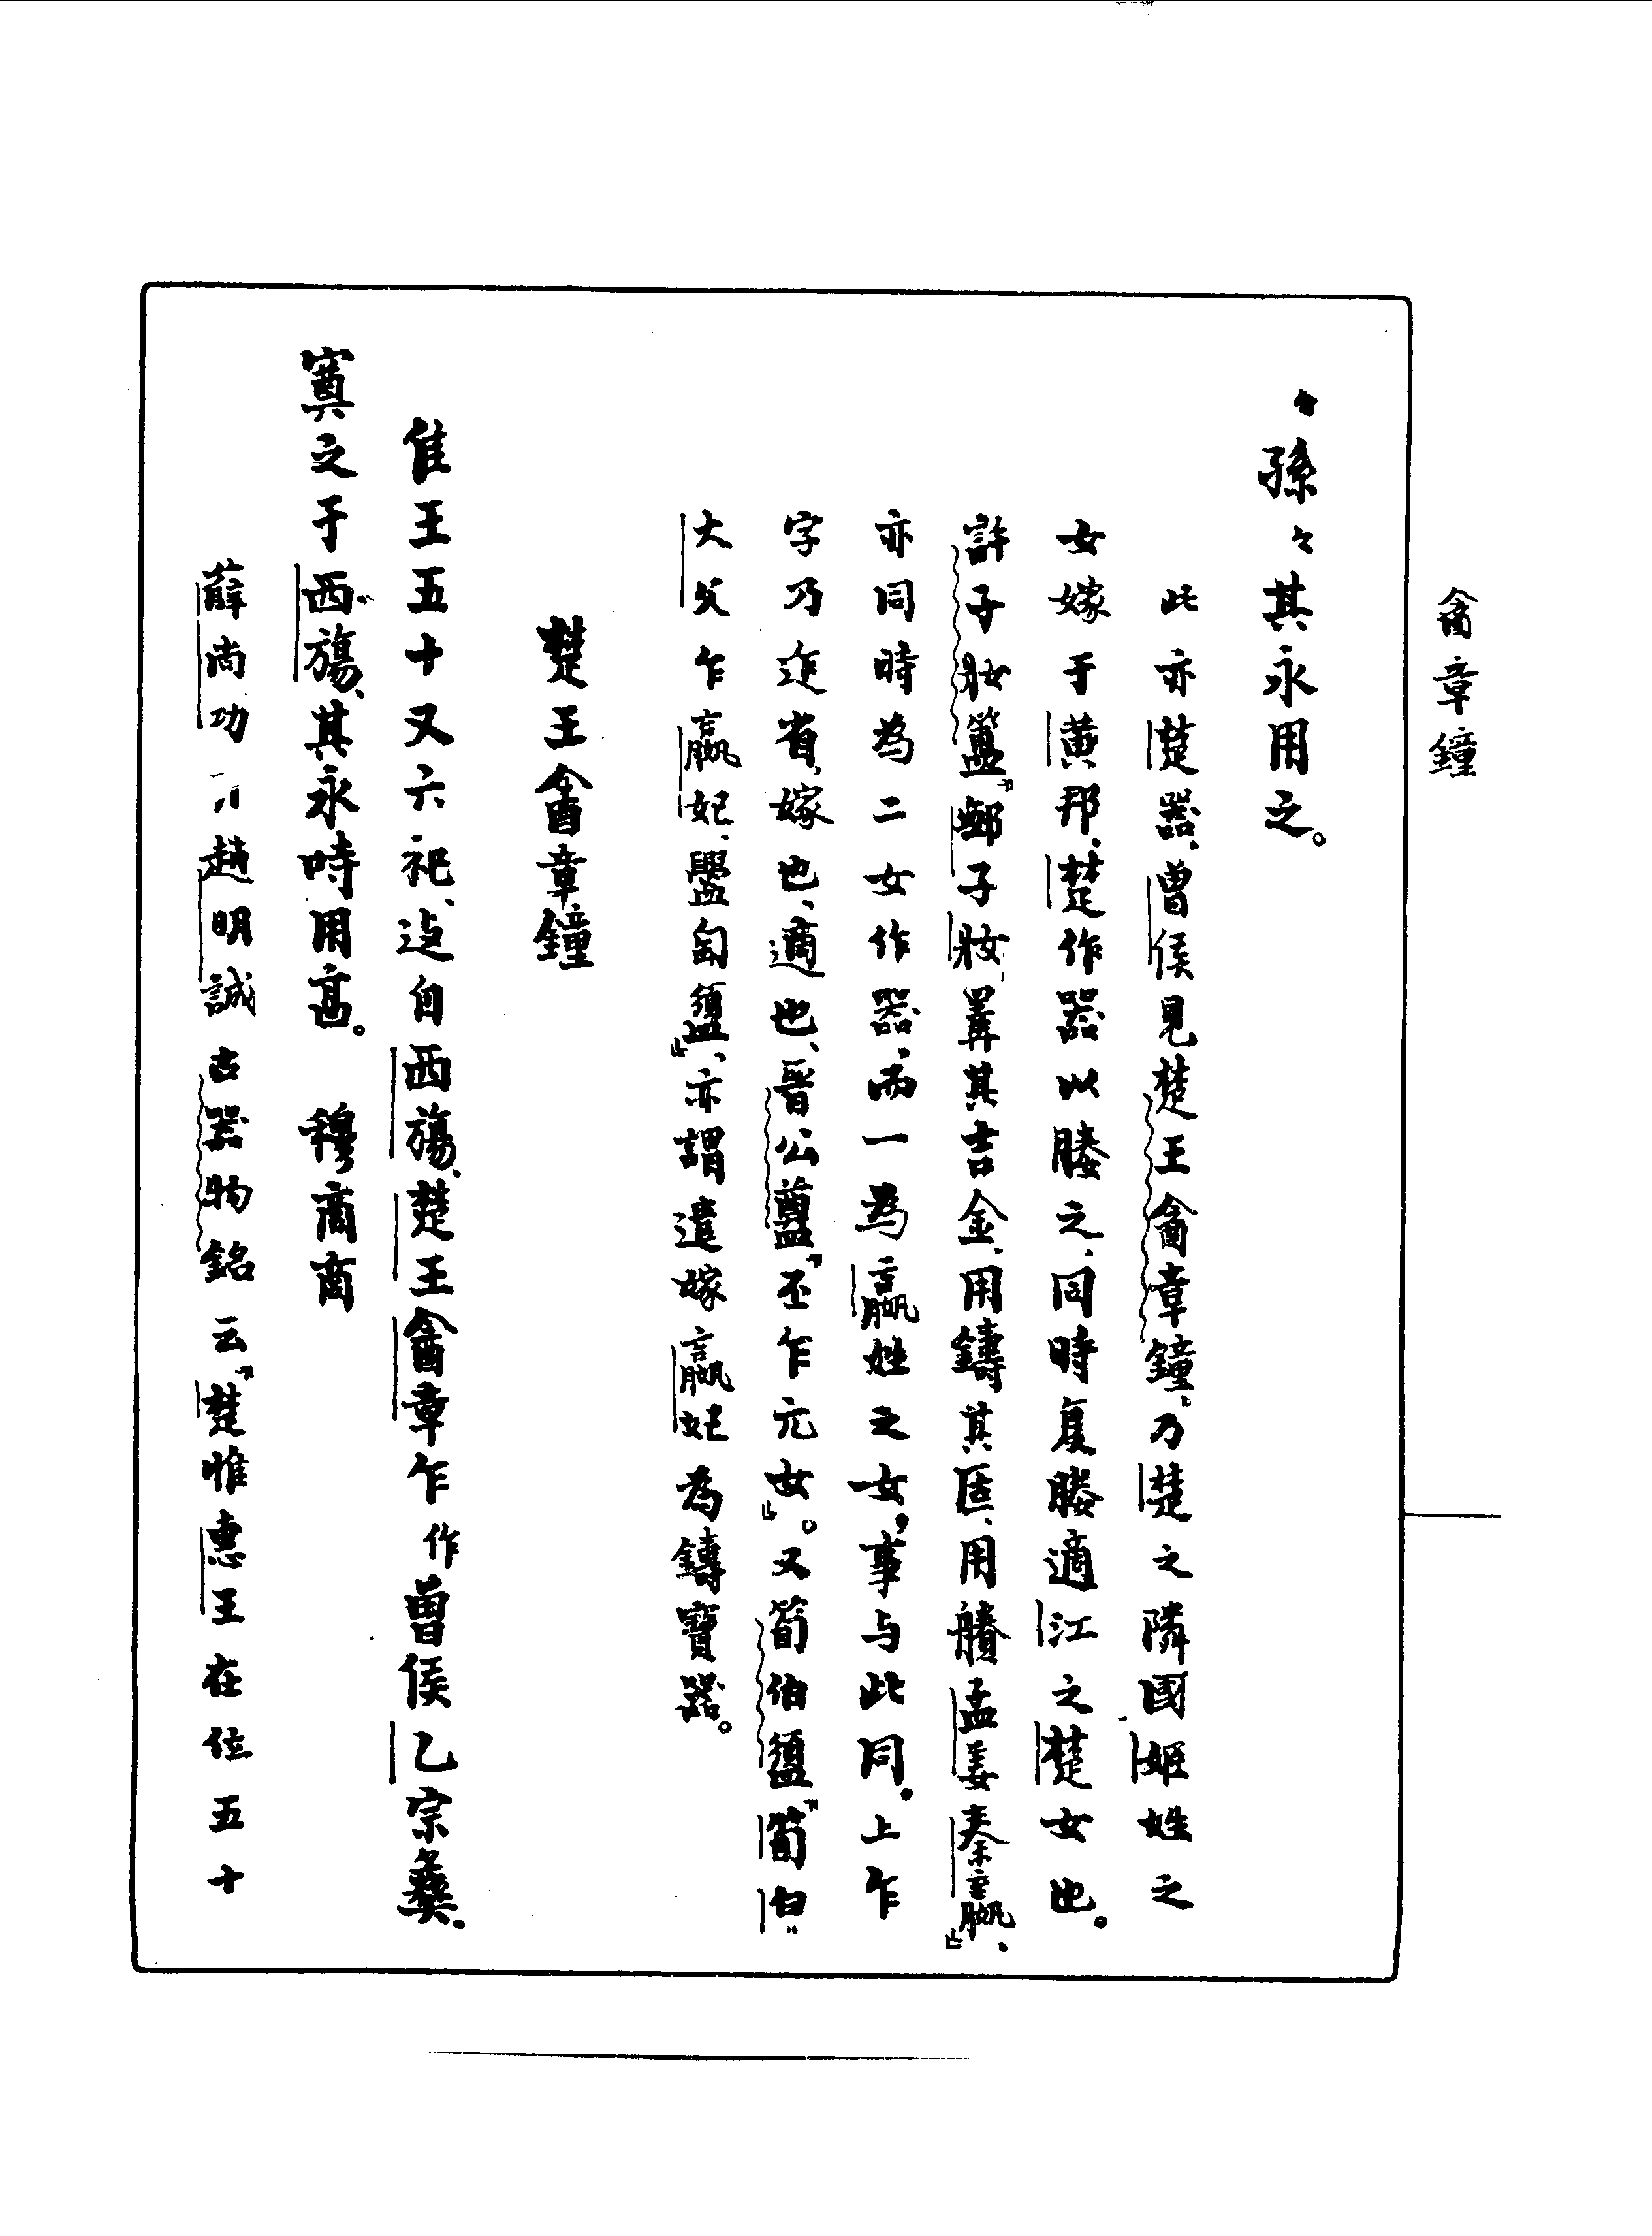 酓章鐘
々孫々其永用之。
此亦楚器、曾侯見楚王酓章鐘、乃楚之隣國姬姓之
女嫁于黄邦、楚作器以媵之、同時復媵適江之楚女也。
許子妝簠『鄦子妝擇其吉金、用鑄其匡、用媵孟姜秦嬴』、
亦同時為二女作器、而一為嬴姓之女、事与此同。上乍
字乃迮省、嫁也、適也、晉公䥗『丕乍元女』。又筍伯盨『筍白
大父乍嬴妃、鑄匋盨』、亦謂遣嫁嬴妃為鑄寶器。
楚王酓章鐘
隹王五十又六祀、返自西𣄴、楚王酓章乍作曾侯乙宗彝、
奠之于西𣄴、其永時用亯。 穆商商
薛尚功引趙明誠古器物銘云『楚惟惠王在位五十